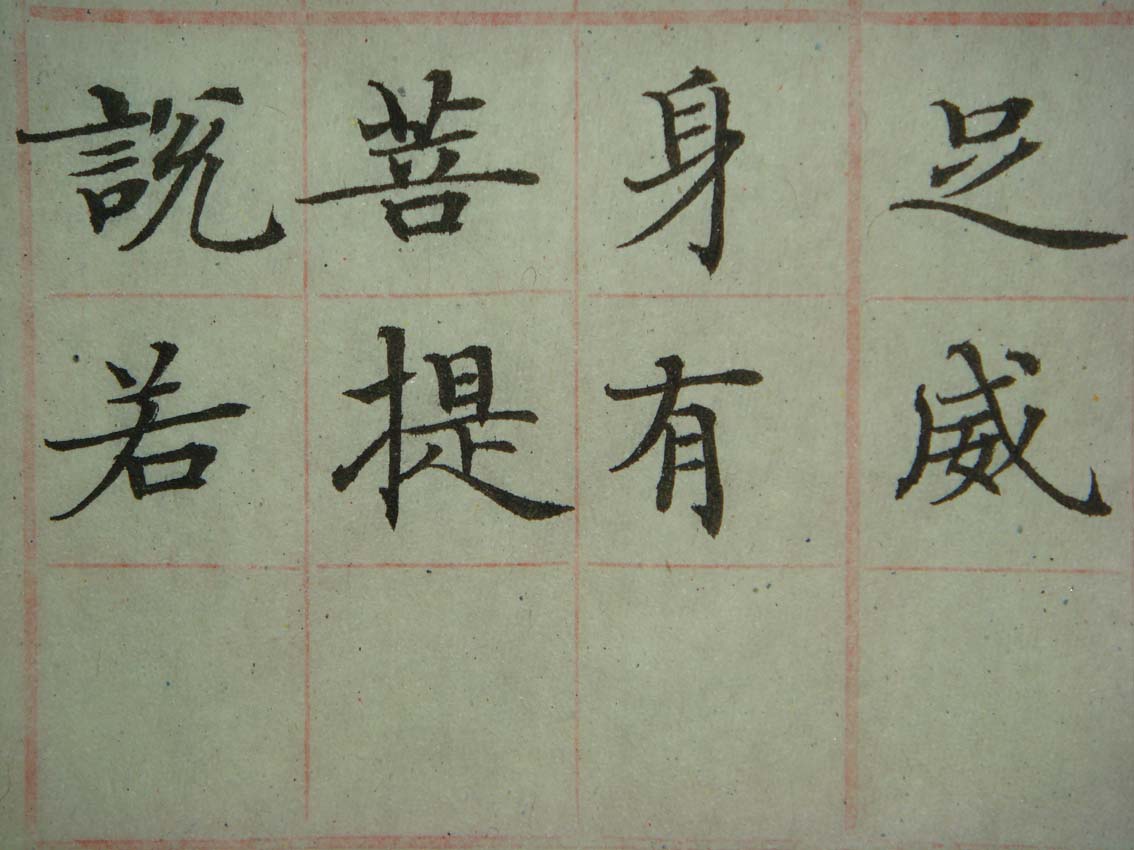 足威
身有
菩提
說若